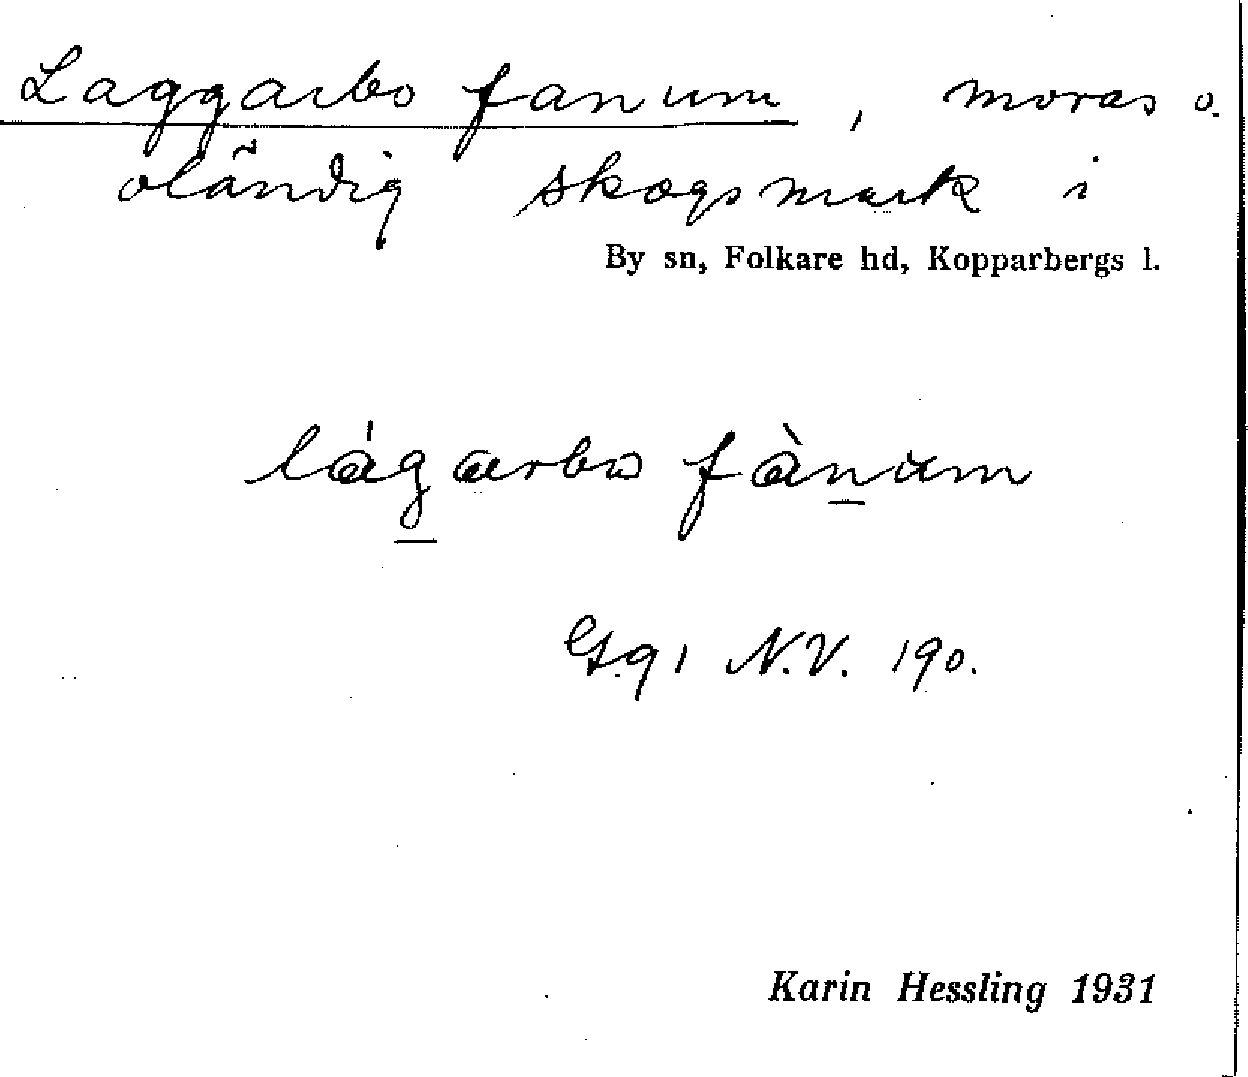 Laggarbo fanum, moras o.
oländig skogsmark i
By sn, Folkare hd, Kopparbergs l.
lágarbo fànum
N.V. 190.
Karin Hessling 1931